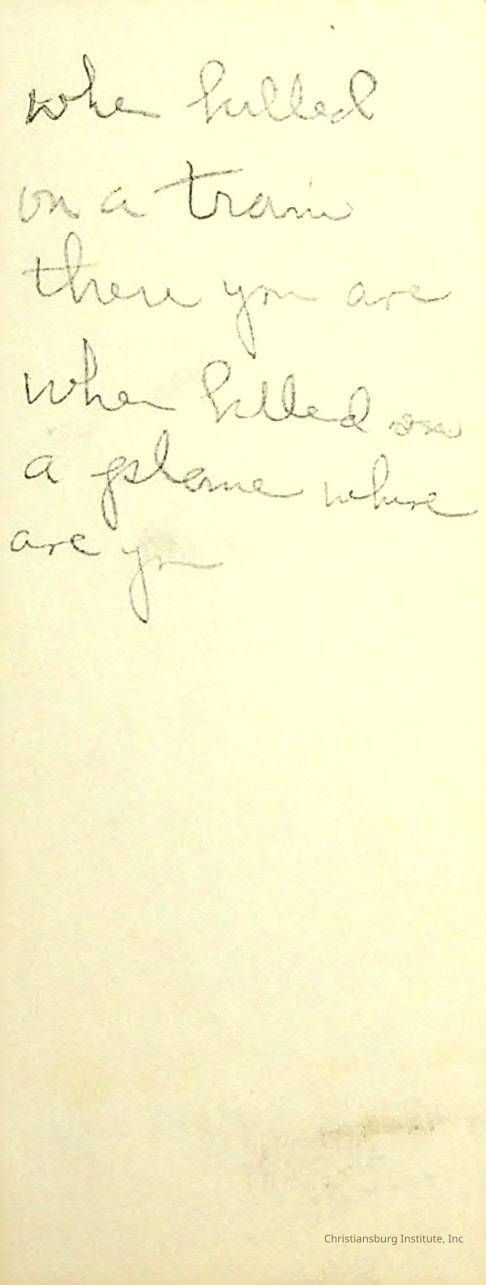 when killed
on a train
there you are
when killed on
a plane where
are you
Christiansburg Institute, Inc